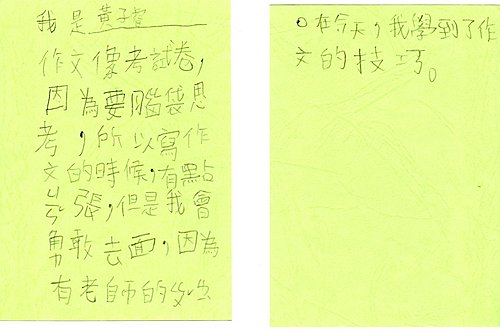 我是黃子
作文像考試卷，
因為要腦袋思
考，所以寫作
文的時候，有點
張，但是我會
勇敢去面，因為
有老師的
在今天，我學到了作
文的技巧。